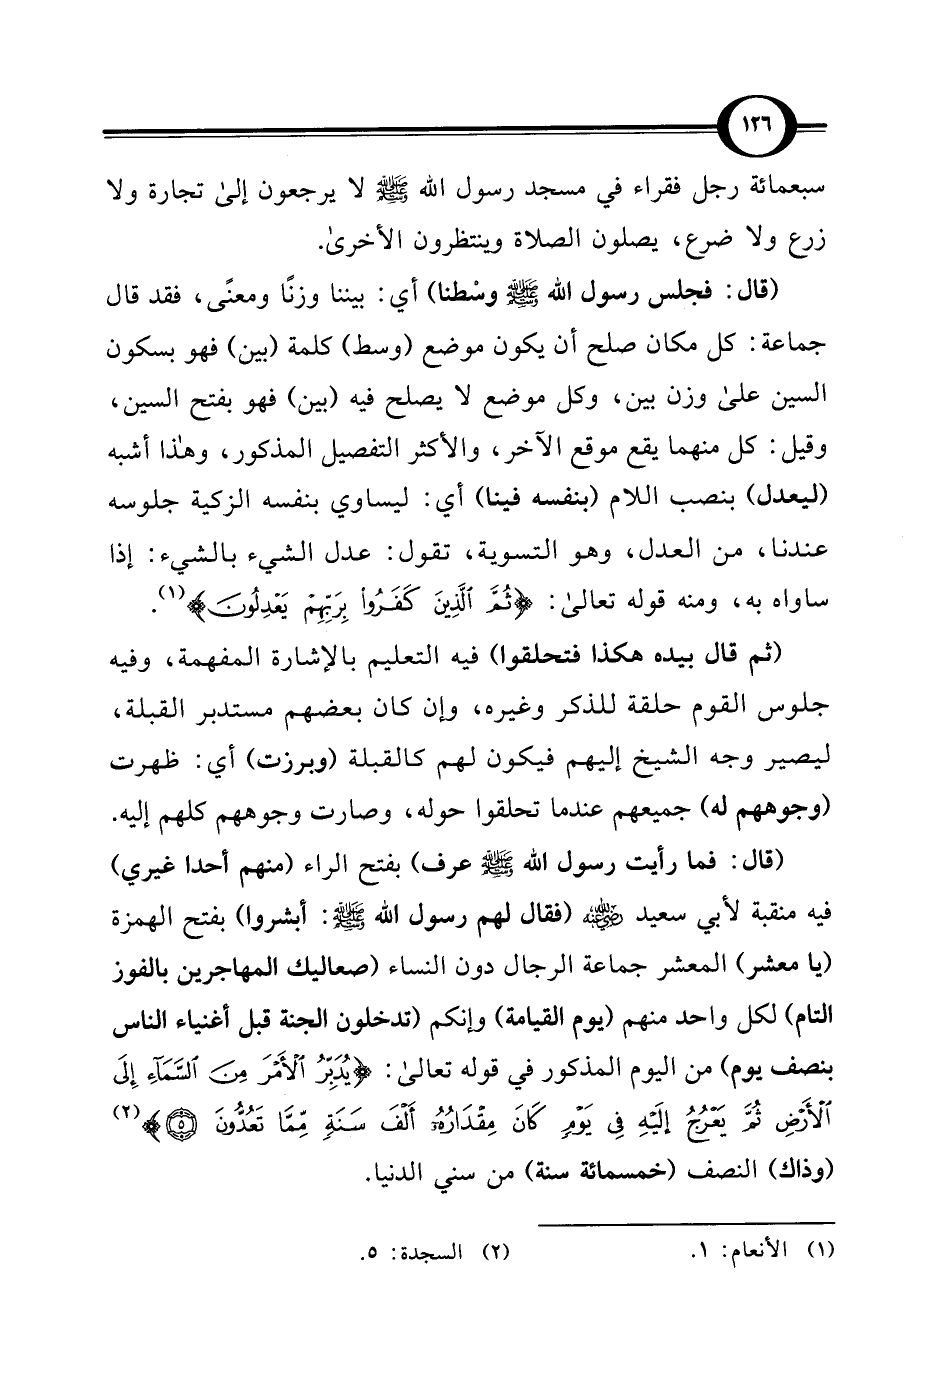 ١٢٦
سبعمائة رجل فقراء في مسجد رسول الله ﷺ لا يرجعون إلىٰ تجارة ولا
زرع ولا ضرع، يصلون الصلاة وينتظرون الأخرىٰ.
(قال: فجلس رسول الله ﷺ وسْطنا) أي: بيننا وزنًا ومعنًى، فقد قال
جماعة: كل مكان صلح أن يكون موضع (وسط) كلمة (بين) فهو بسكون
السين علىٰ وزن بين، وكل موضع لا يصلح فيه (بين) فهو بفتح السين،
وقيل: كل منهما يقع موقع الآخر، والأكثر التفصيل المذكور، وهٰذا أشبه
(ليعدل) بنصب اللام (بنفسه فينا) أي: ليساوي بنفسه الزكية جلوسه
عندنا، من العدل، وهو التسوية، تقول: عدل الشيء بالشيء: إذا
ساواه به، ومنه قوله تعالىٰ: ﴿ثُمَّ ٱلَّذِينَ كَفَرُوا۟ بِرَبِّهِمْ يَعْدِلُونَ﴾(١).
(ثم قال بيده هكذا فتحلقوا) فيه التعليم بالإشارة المفهمة، وفيه
جلوس القوم حلقة للذكر وغيره، وإن كان بعضهم مستدبر القبلة،
ليصير وجه الشيخ إليهم فيكون لهم كالقبلة (وبرزت) أي: ظهرت
(وجوههم له) جميعهم عندما تحلقوا حوله، وصارت وجوههم كلهم إليه.
(قال: فما رأيت رسول الله ﷺ عرف) بفتح الراء (منهم أحدا غيري)
فيه منقبة لأبي سعيد رضي الله عنه (فقال لهم رسول الله ﷺ: أبشروا) بفتح الهمزة
(يا معشر) المعشر جماعة الرجال دون النساء (صعاليك المهاجرين بالفوز
التام) لكل واحد منهم (يوم القيامة) وإنكم (تدخلون الجنة قبل أغنياء الناس
بنصف يوم) من اليوم المذكور في قوله تعالىٰ: ﴿يُدَبِّرُ ٱلْأَمْرَ مِنَ ٱلسَّمَآءِ إِلَى
ٱلْأَرْضِ ثُمَّ يَعْرُجُ إِلَيْهِ فِى يَوْمٍ كَانَ مِقْدَارُهُۥٓ أَلْفَ سَنَةٍ مِّمَّا تَعُدُّونَ ٥﴾(٢)
(وذاك) النصف (خمسمائة سنة) من سني الدنيا.
(١) الأنعام: ١. (٢) السجدة: ٥.